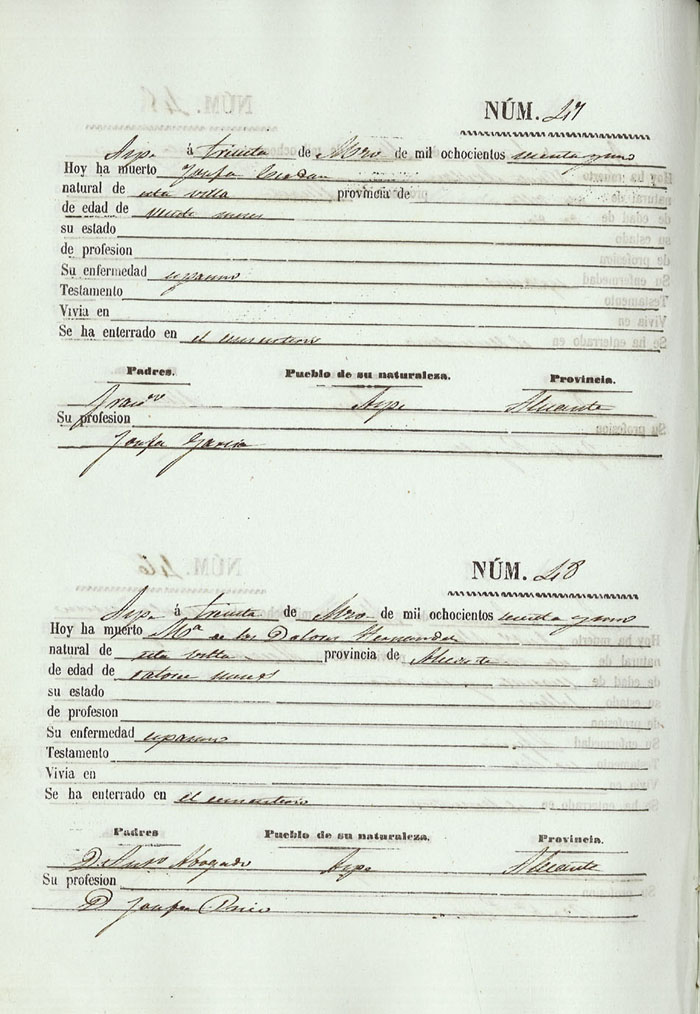 NÚM. 47
Aspe á treinta de Mzo de mil ochocientos sesenta y uno
Hoy ha muerto Josefa
natural de esta villa provincia de
de edad de meses
su estado
de profesion
Su enfermedad espasmo
Testamento
Vivia en
Se ha enterrado en el cementerio
Padres. Pueblo de su naturaleza. Provincia.
Franco Aspe Alicante
Su profesion
Josefa Garcia
NÚM. 48
Aspe á treinta de Mzo de mil ochocientos sesenta y uno
Hoy ha muerto Mª de los Dolores Hernandez
natural de esta villa provincia de Alicante
de edad de catorce meses
su estado
de profesion
Su enfermedad espasmo
Testamento
Vivia en
Se ha enterrado en el cementerio
Padres Pueblo de su naturaleza. Provincia.
D. Abogado Aspe Alicante
Su profesion
D Josefa